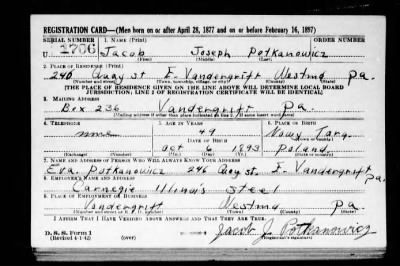 REGISTRATION CARD—(Men born on or after April 28, 1877 and on or before February 16, 1897)
SERIAL NUMBER 1. NAME (Print) ORDER NUMBER
U 1706 Jacob Joseph Potkanowicz
(First) (Middle) (Last)
2. PLACE OF RESIDENCE (Print)
246 Quay st E. Vandergrift Westmd Pa.
(Number and street) (Town, township, village, or city) (County) (State)
[THE PLACE OF RESIDENCE GIVEN ON THE LINE ABOVE WILL DETERMINE LOCAL BOARD
JURISDICTION; LINE 2 OF REGISTRATION CERTIFICATE WILL BE IDENTICAL]
3. MAILING ADDRESS
Box 236 Vandergrift Pa.
[Mailing address if other than place indicated on line 2. If same insert word same]
4. TELEPHONE 5. AGE IN YEARS 6. PLACE OF BIRTH
none 49 Nowy Targ
DATE OF BIRTH (Town or county)
Oct 6 1893 Poland
(Exchange) (Number) (Mo.) (Day) (Yr.) (State or country)
7. NAME AND ADDRESS OF PERSON WHO WILL ALWAYS KNOW YOUR ADDRESS
Eva Potkanowicz 246 Quay st. E. Vandergrift Pa.
8. EMPLOYER'S NAME AND ADDRESS
Carnegie Illinois Steel
9. PLACE OF EMPLOYMENT OR BUSINESS
Vandergrift Westmd Pa
(Number and street or R. F. D. number) (Town) (County) (State)
I AFFIRM THAT I HAVE VERIFIED ABOVE ANSWERS AND THAT THEY ARE TRUE.
D. S. S. Form 1
(Revised 4-1-42) (over) Jacob J. Potkanowicz
(Registrant's signature)